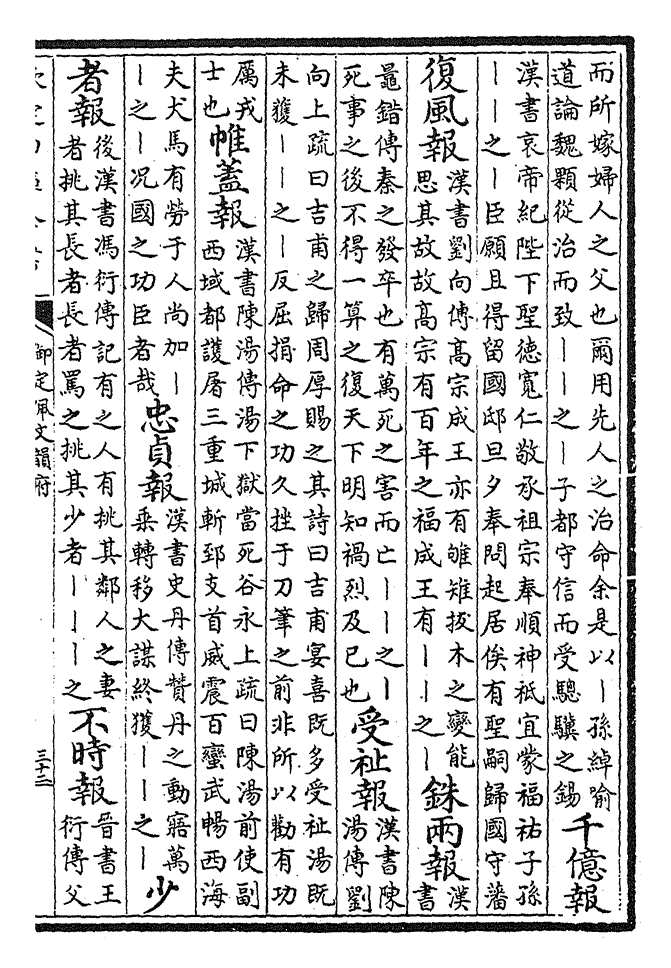 而所嫁婦人之父也爾用先人之治命余是以丨孫綽喻
道論魏顆從治而致丨丨之丨子都守信而受驄驥之錫
千億報
漢書哀帝紀陛下聖德寬仁敬承祖宗奉順神祇宜蒙福祐子孫
丨丨之丨臣願且得留國邸旦夕奉問起居俟有聖嗣歸國守藩
復風報
漢書劉向傳高宗成王亦有雊雉拔木之變能
思其故故高宗有百年之福成王有丨丨之丨
銖兩報
漢
書
鼂錯傳秦之發卒也有萬死之害而亡丨丨之丨
死事之後不得一算之復天下明知禍烈及已也
受祉報
漢書陳
湯傳劉
向上疏曰吉甫之歸周厚賜之其詩曰吉甫宴喜既多受祉湯既
未獲丨丨之丨反屈捐命之功久挫于刀筆之前非所以勸有功
厲戎
士也
帷蓋報
漢書陳湯傳湯下獄當死谷永上疏曰陳湯前使副
西域都護屠三重城斬郅支首威震百蠻武暢西海
夫犬馬有勞于人尚加丨
丨之丨况國之功臣者哉
忠貞報
漢書史丹傳贊丹之動寤萬
乘轉移大謀終獲丨丨之丨
少
者報
後漢書馮衍傳記有之人有挑其鄰人之妻
者挑其長者長者罵之挑其少者丨丨丨之
不時報
晉書王
衍傳父
御定佩文韻府
三十二